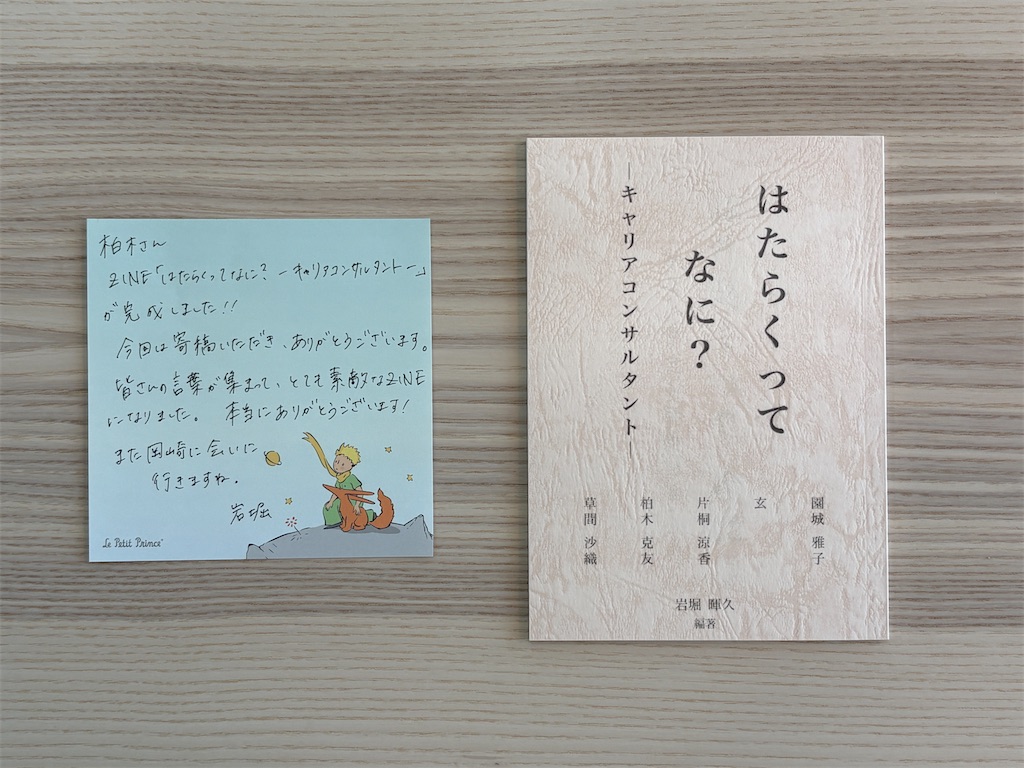 柏木さん
ZINE「はたらくってなに? ーキャリアコンサルタントー」
が完成しました!!
今回は寄稿いただき、ありがとうございます。
皆さんの言葉が集まって、とても素敵なZINE
になりました。 本当にありがとうございます!
また岡崎に会いに
行きますね。
岩堀
Le Petit Prince
はたらくって
なに?
―キャリアコンサルタント―
園城 雅子
玄
片桐 涼香
柏木 克友
草間 沙織
岩堀 暉久
編著